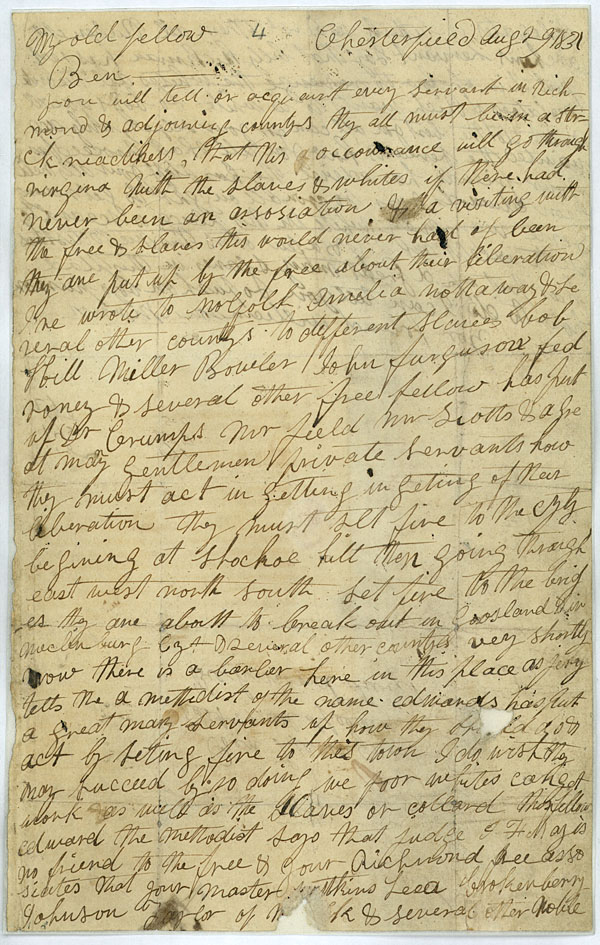 My old fellow 4 Chesterfield Aug 29 1831
Ben
you will tell or acquaint every servant in Rich-
mond & adjoining countys they all must be in a str-
ck readiness, that this occurance will go through
virgina with the slaves & whites if there had
never been an assosiation & a visiting with
the free & slaves this would never had of been
they are put up by the free about their liberation
I've wrote to Norfolk Amelia nottaway & se
veral other countys to different slaves bob
& bill Miller Bowler John furguson fed
roney & several other free fellow has put
up Dr Crumps Mr field Mr Scotts & a gre
at many gentlemen private servants how
they must act in getting in geting of their
liberation they must set fire to the city
begining at shockoe hill then going through
east west north south set fire to the brig
es they are about to break out in Goosland & in
mecklenburg & several other countys very shortly
now there is a barber here in this place
tells me a methodist of the name edwards has put
a great many servants up how they should do &
act by seting fire to this town I do wish they
may succeed by so doing we poor whites can get
work as well as the slaves or collard this fellow
edward the methodist says that judge T F May is
no friend to the free & your Richmond free asso
siates that your master Brockenberry
Johnson Taylor of & several other noble